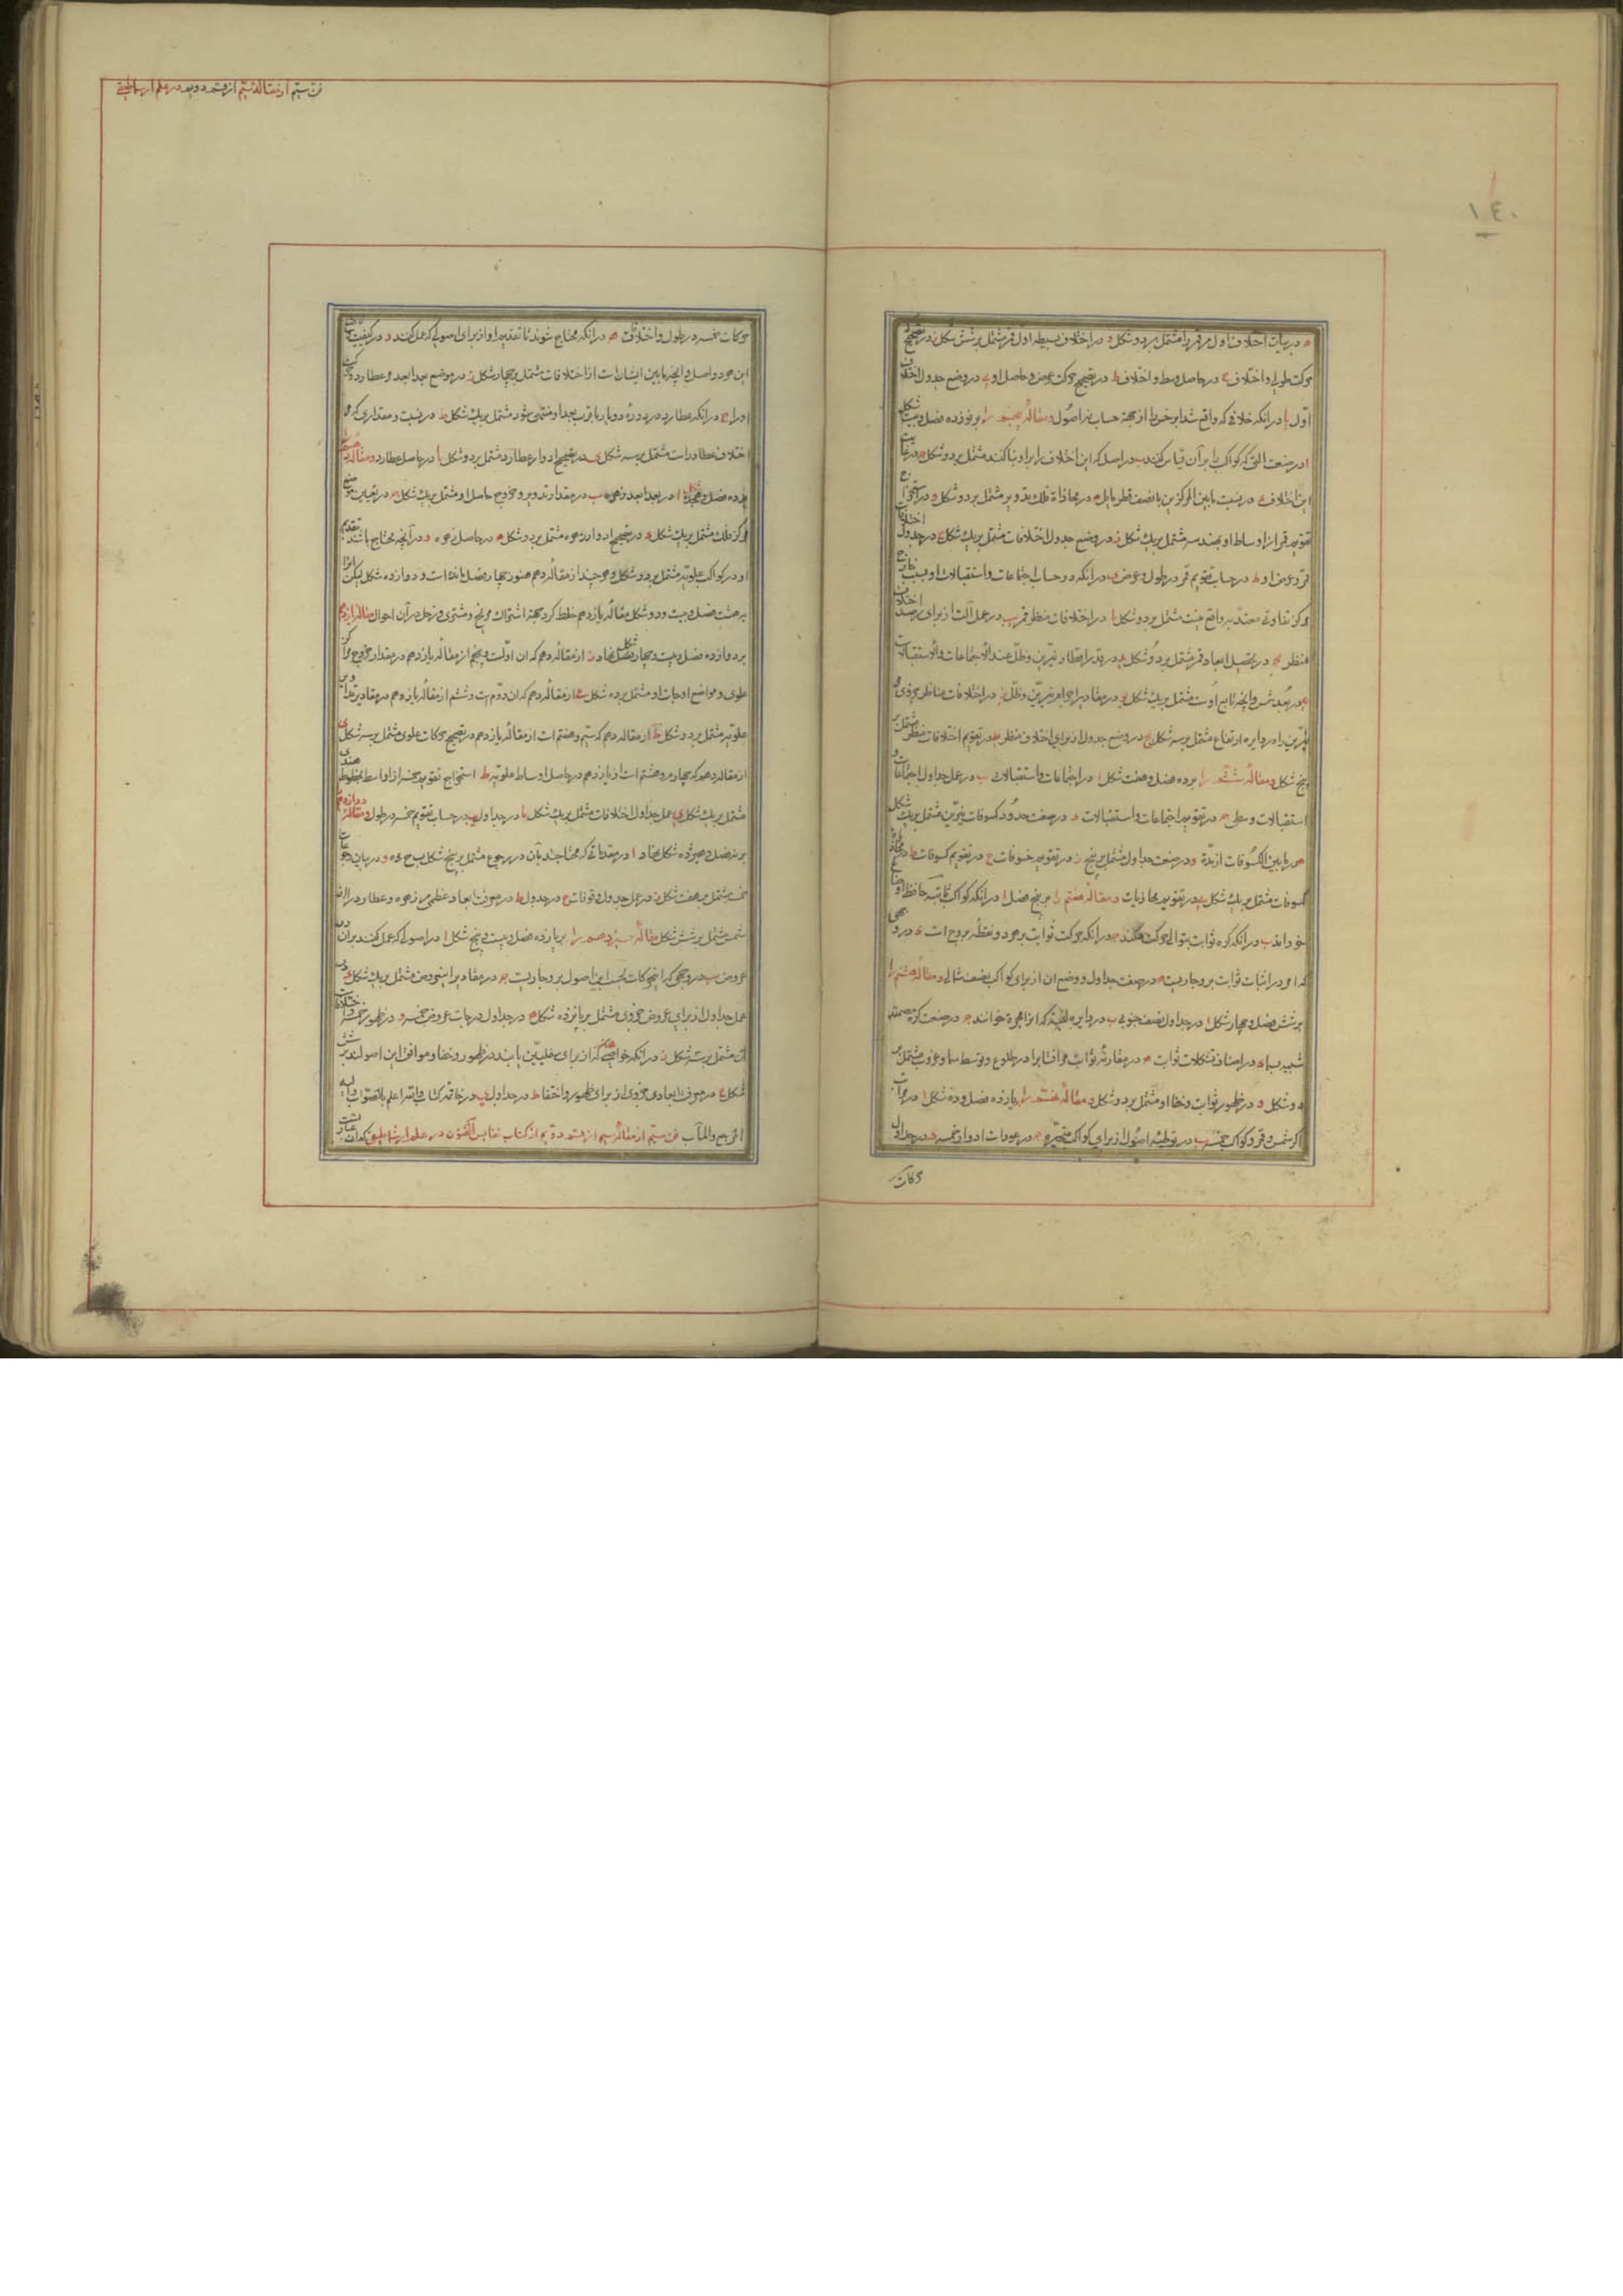 ١٤٠
ه در بیان اختلاف اول مر قمر را مشتمل بر دو شکل و در اختلاف بسیطه اول قمر مشتمل بر شش شکل ز در تصحیح
حرکت طولی و اختلاف ح در حاصل وسط و اختلاف ط در تصحیح حرکت عرض و حاصل او ی در وضع جدول اختلاف
اول یا در انکه خلافی که واقع شد ابرخس را از جهة حساب نه اصول و مقالهٔ پنجم را بر نوزده فصل و بیست شکل
ا در صنعت التی که کواکب را بر آن قیاس کنند ب در اصل که این اختلاف را بر او بنا کنند مشتمل بر دو شکل
این اختلاف در نسبت ما بین المرکزین با نصف قطر مایل ه در محاذاة فلک تدویر مشتمل بر دو شکل و در استخراج
تقویم قمر از اوساط او بهندسه مشتمل بر یک شکل ز در وضع جدول اختلافات مشتمل بر یک شکل ح در جدول اختلافات
قمر و عرض او ط در حساب تقویم قمر در طول و عرض ی در انکه در حساب اجتماعات و استقبالات او بسبب خارج
مرکز تفاوتی معتد به واقع نیست مشتمل بر دو شکل یا در اختلافات منظر قمر یب در عمل آلت از برای رصد اختلاف
منظر یج در تحصیل ابعاد قمر مشتمل بر دو شکل ید در قدر اقطار نیرین و ظل عند الاجتماعات والاستقبالات
یه در بعد شمس و انچه تابع اوست مشتمل بر یک شکل یو در مقادیر اجرام نیرین و ظل یز در اختلافات مناظر جزوی
نیرین را در دایره ارتفاع مشتمل بر سه شکل یح در وضع جدول از برای اختلاف منظر یط در تقویم اختلافات منظر مشتمل بر
پنج شکل و مقالهٔ ششم را بر ده فصل و هفت شکل ا در اجتماعات و استقبالات ب در عمل جداول اجتماعات و
استقبالات وسطی ج در تقویم اجتماعات و استقبالات د در صنعت حدود کسوفات نیرین مشتمل بر یک شکل
ه در ما بین الکسوفات از مدة و در صنعت جداول مشتمل بر پنج ز در تقویم خسوفات ح در تقویم کسوفات ط در محاذاة
کسوفات مشتمل بر یک شکل ی در تقویم محاذیات و مقالهٔ هفتم را بر پنج فصل ا در انکه کواکب ثابته حافظ اوضاع
خود اند ب در انکه کره ثوابت بتوالی حرکت میکند ج در انکه حرکت ثوابت بر محور و نقطهٔ بروج است د در وجهی
که امر در اثبات ثوابت بر و جاریست ه در صنعت جداول و وضع ان از برای کواکب نصف شمالی و مقالهٔ هشتم را
بر شش فصل و چهار شکل ا در جداول نصف جنوبی ب در دایره لبنیه که انرا مجره خوانند ج در صنعت کره مصمته
شبیه بسماء د در اصناف تشکلات ثوابت ه در مقارنهٔ ثوابت مر افتابرا در طلوع و توسط سما و غروب مشتمل بر
دو شکل و در ظهور ثوابت و خفا او مشتمل بر دو شکل و مقالهٔ نهم را بر یازده فصل و ده شکل ا در مراتب
اکر شمس و قمر و کواکب خمسه ب در توطئه اصول از برای کواکب متحیره ج در عودات ادوار خمسه د در جداول
حرکات
فن سیم از مقالهٔ سیم از قسم دویم در علم ارثماطیقی
حرکات خمسه در طول و اختلاف ه در انکه محتاج شوند تا تقدیم او از برای اصولی که عمل کنند و در کیفیت
این هر دو اصل و انچه ما بین ایشان است از اختلافات مشتمل بر چهار شکل ز در موضع بعد ابعد و عطارد و حرکت
اورا ح در انکه عطارد در هر دورهٔ دو بار باقرب بعد او منتهی شود مشتمل بر یک شکل ط در نسبت و مقداری که مر
اختلاف عطارد راست مشتمل بر سه شکل ی در تصحیح ادوار عطارد مشتمل بر دو شکل یا در حاصل عطارد و مقالهٔ دهم
بر ده فصل و هجده شکل ا در بعد ابعد زهره ب در مقدار تدویر و خروج حاصل او مشتمل بر یک شکل ج در تعیین موضع
مرکز فلک مشتمل بر یک شکل د در تصحیح ادوار زهره مشتمل بر دو شکل ه در حاصل زهره و در آنچه محتاج باشند بتقدیم
او در کواکب علویه مشتمل بر دو شکل و هر چند از مقالهٔ دهم هنوز چهار فصل مانده است و دوازده شکل لیکن انرا
بر هشت فصل و بیست و دو شکل مقالهٔ یازدهم خلط کرد بجهة اشتراک مریخ و مشتری و زحل در آن احوال مقالهٔ یازدهم
بر دوازده فصل و بیست و چهار شکل نهاد ز از مقالهٔ دهم که ان اولست و پنجم از مقاله یازدهم در مقدار خروج مراکز
علوی و مواضع اوجات او مشتمل بر ده شکل ح از مقالهٔ دهم که ان دوم است و ششم از مقالهٔ یازدهم در مقادیر تداویر
علویه مشتمل بر دو شکل ط از مقاله دهم که سیم و هفتم است از مقالهٔ یازدهم در تصحیح حرکات علوی مشتمل بر سه شکل ی
از مقاله دهم که چهارم و هشتم است از یازدهم در حاصل اوساط علویه ط استخراج تقویم خمسه از اوساط بخطوط هندسی
مشتمل بر یک شکل ی عمل جداول اختلافات مشتمل بر یک شکل یا در جداول یب در حساب تقویم خمسه در طول و مقالهٔ دوازدهم
بر نه فصل و هیژده شکل نهاد ا در مقدماتی که محتاجند بآن در رجوع مشتمل بر پنج شکل ب ج د ه و در بیان رجوعات
خمسه مشتمل بر هفت شکل ز در عمل جدول وقوفات ح در جدول ط در معرفت ابعاد عظمی مر زهره و عطارد را از
شمس مشتمل بر شش شکل مقالهٔ سیزدهم را بر یازده فصل و بیست و پنج شکل ا در اصولی که عمل کنند بر ان در
عروض ب در وجهی که این حرکات بحسب این اصول بر و جاریست ج در مقادیر مشتمل بر یک شکل د در
عمل جداول از برای عروض جزوی مشتمل بر پانزده شکل ه در جداول درجات عروض خمسه و در ظهور خمسه و اختفاء
ان مشتمل بر سه شکل ز در انکه خواصی که از برای سفلیین یابند در ظهور و خفا و موافق این اصولند بر شش
شکل ح در معرفت ابعادی جزوی از برای ظهور و اختفا ط در جداول ی در خاتمهٔ کتاب والله اعلم بالصواب والیه
المرجع والمآب فن سیم از مقالهٔ سیم از قسم دویم از کتاب نفایس الفنون در علم ارثماطیقی که آن عبارتست